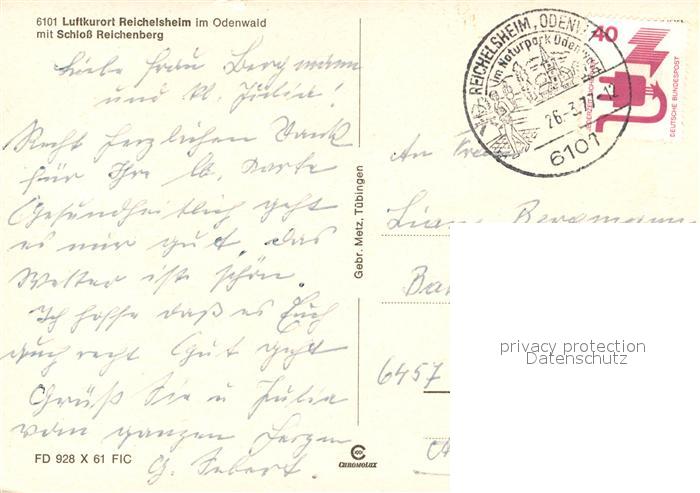 6101 Luftkurort Reichelsheim im Odenwald
mit Schloß Reichenberg
Liebe Frau Bergmann
und kl. Julia!
Recht herzlichen Dank
für Ihre lb. Karte
Gesundheitlich geht
es mir gut, das
Wetter ist schön.
Ich hoffe daß es Euch
auch recht Gut geht
Grüß Sie u Julia
vom ganzen Herzen
G. Sebert.
FD 928 X 61 FIC
Gebr. Metz, Tübingen
CHROMOLUX
REICHELSHEIM, ODENW
im Naturpark Odenwald
26.-3.7
12
6101
40
DEUTSCHE BUNDESPOST
An
Liane Bergmann
Ba
6457
privacy protection
Datenschutz